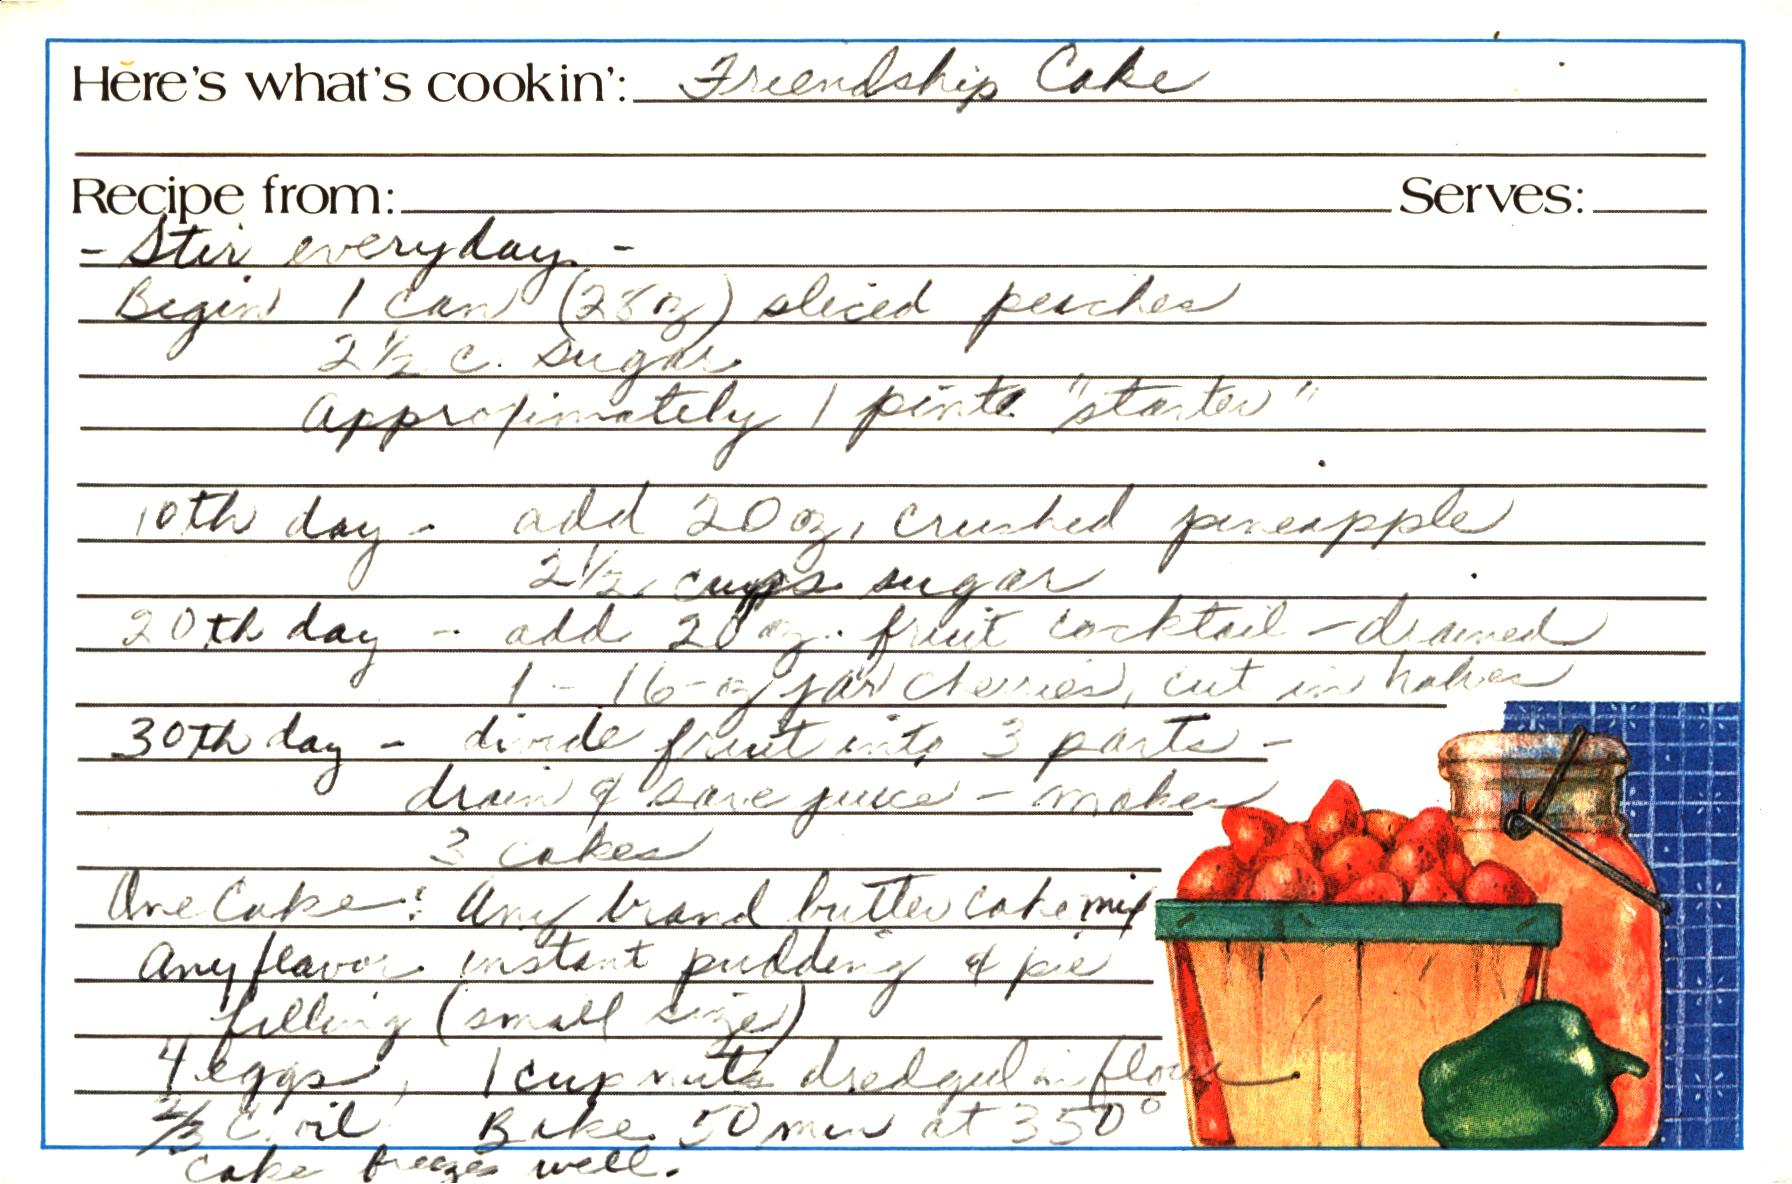 Here's what's cookin': Friendship Cake
Recipe from: Serves:
- Stir everyday. -
Begin 1 can (28 oz) sliced peaches
2 1/2 c. sugar
Approximately 1 pint "starter"
10th day - add 20 oz. crushed pineapple
2 1/2 cups sugar
20th day - add 20 oz. fruit cocktail - drained
1 - 16-oz jar cherries, cut in halves
30th day - divide fruit into 3 parts -
drain & save juice - makes
3 cakes
One Cake: Any brand butter cake mix
Any flavor instant pudding & pie
filling (small size)
4 eggs, 1 cup nuts dredged in flour
2/3 C. oil Bake 50 min at 350°
Cake freezes well.